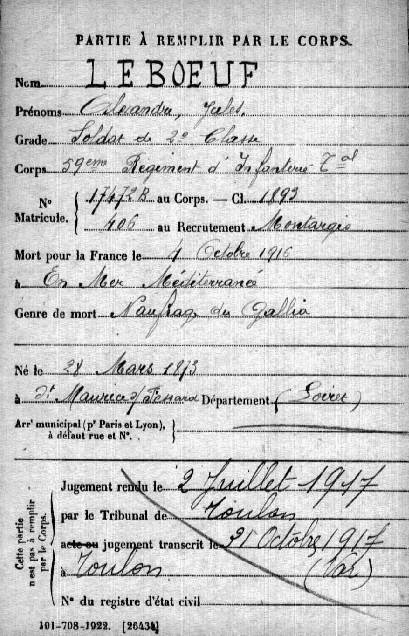 PARTIE À REMPLIR PAR LE CORPS.
Nom LEBOEUF
Prénoms Alexandre, Jules.
Grade Soldat de 2e Classe
Corps 59eme Régiment d'Infanterie Tal
N° Matricule. { 17472 R au Corps. — Cl. 1893
406 au Recrutement Montargis
Mort pour la France le 4 Octobre 1916
à En Mer Méditerranée
Genre de mort Naufrage du Gallia
Né le 28 Mars 1873
à St Maurice s/ Fessard Département (Loiret)
Arrt municipal (pr Paris et Lyon), à défaut rue et N°. }
Cette partie n'est pas à remplir par le Corps.
Jugement rendu le 2 Juillet 1917
par le Tribunal de Toulon
acte ou jugement transcrit le 31 Octobre 1917
à Toulon (Var)
N° du registre d'état civil
101-708-1922. [26434]